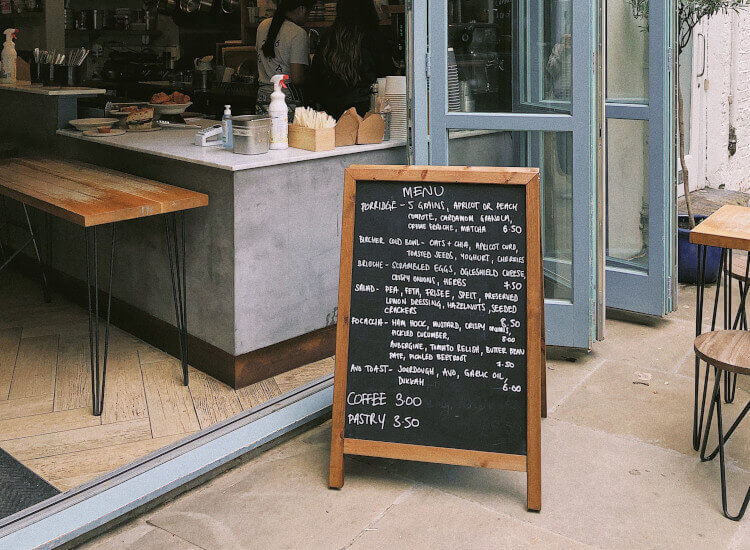 MENU
PORRIDGE - 5 GRAINS, APRICOT OR PEACH
COMPOTE, CARDAMON GRANOLA,
CREME FRAICHE, MATCHA 6.50
BIRCHER COLD BOWL - OATS + CHIA, APRICOT CURD,
TOASTED SEEDS, YOGHURT, CHERRIES
BRIOCHE - SCRAMBLED EGGS, OGLESHIELD CHEESE,
CRISPY ONIONS, HERBS 7.50
SALAD - PEA, FETA, FRISEE, SPELT, PRESERVED
LEMON DRESSING, HAZELNUTS, SEEDED
CRACKERS 8.50
FOCACCIA - HAM HOCK, MUSTARD, CRISPY ONIONS,
PICKLED CUCUMBER, 8.00
AUBERGINE, TOMATO RELISH, BUTTER BEAN
PATE, PICKLED BEETROOT 7.50
AVO TOAST - SOURDOUGH, AVO, GARLIC OIL,
DUKKAH 6.00
COFFEE 3.00
PASTRY 3.50